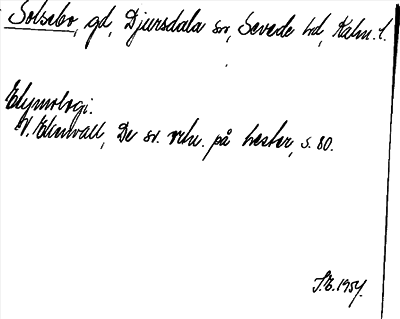 Solsebo, gd, Djursdala sn, Sevede hd, Kalm. l.
Etymologi.
V. Ekenvall, De sv. ortn. på hester, s. 80.
S.E. 1954.